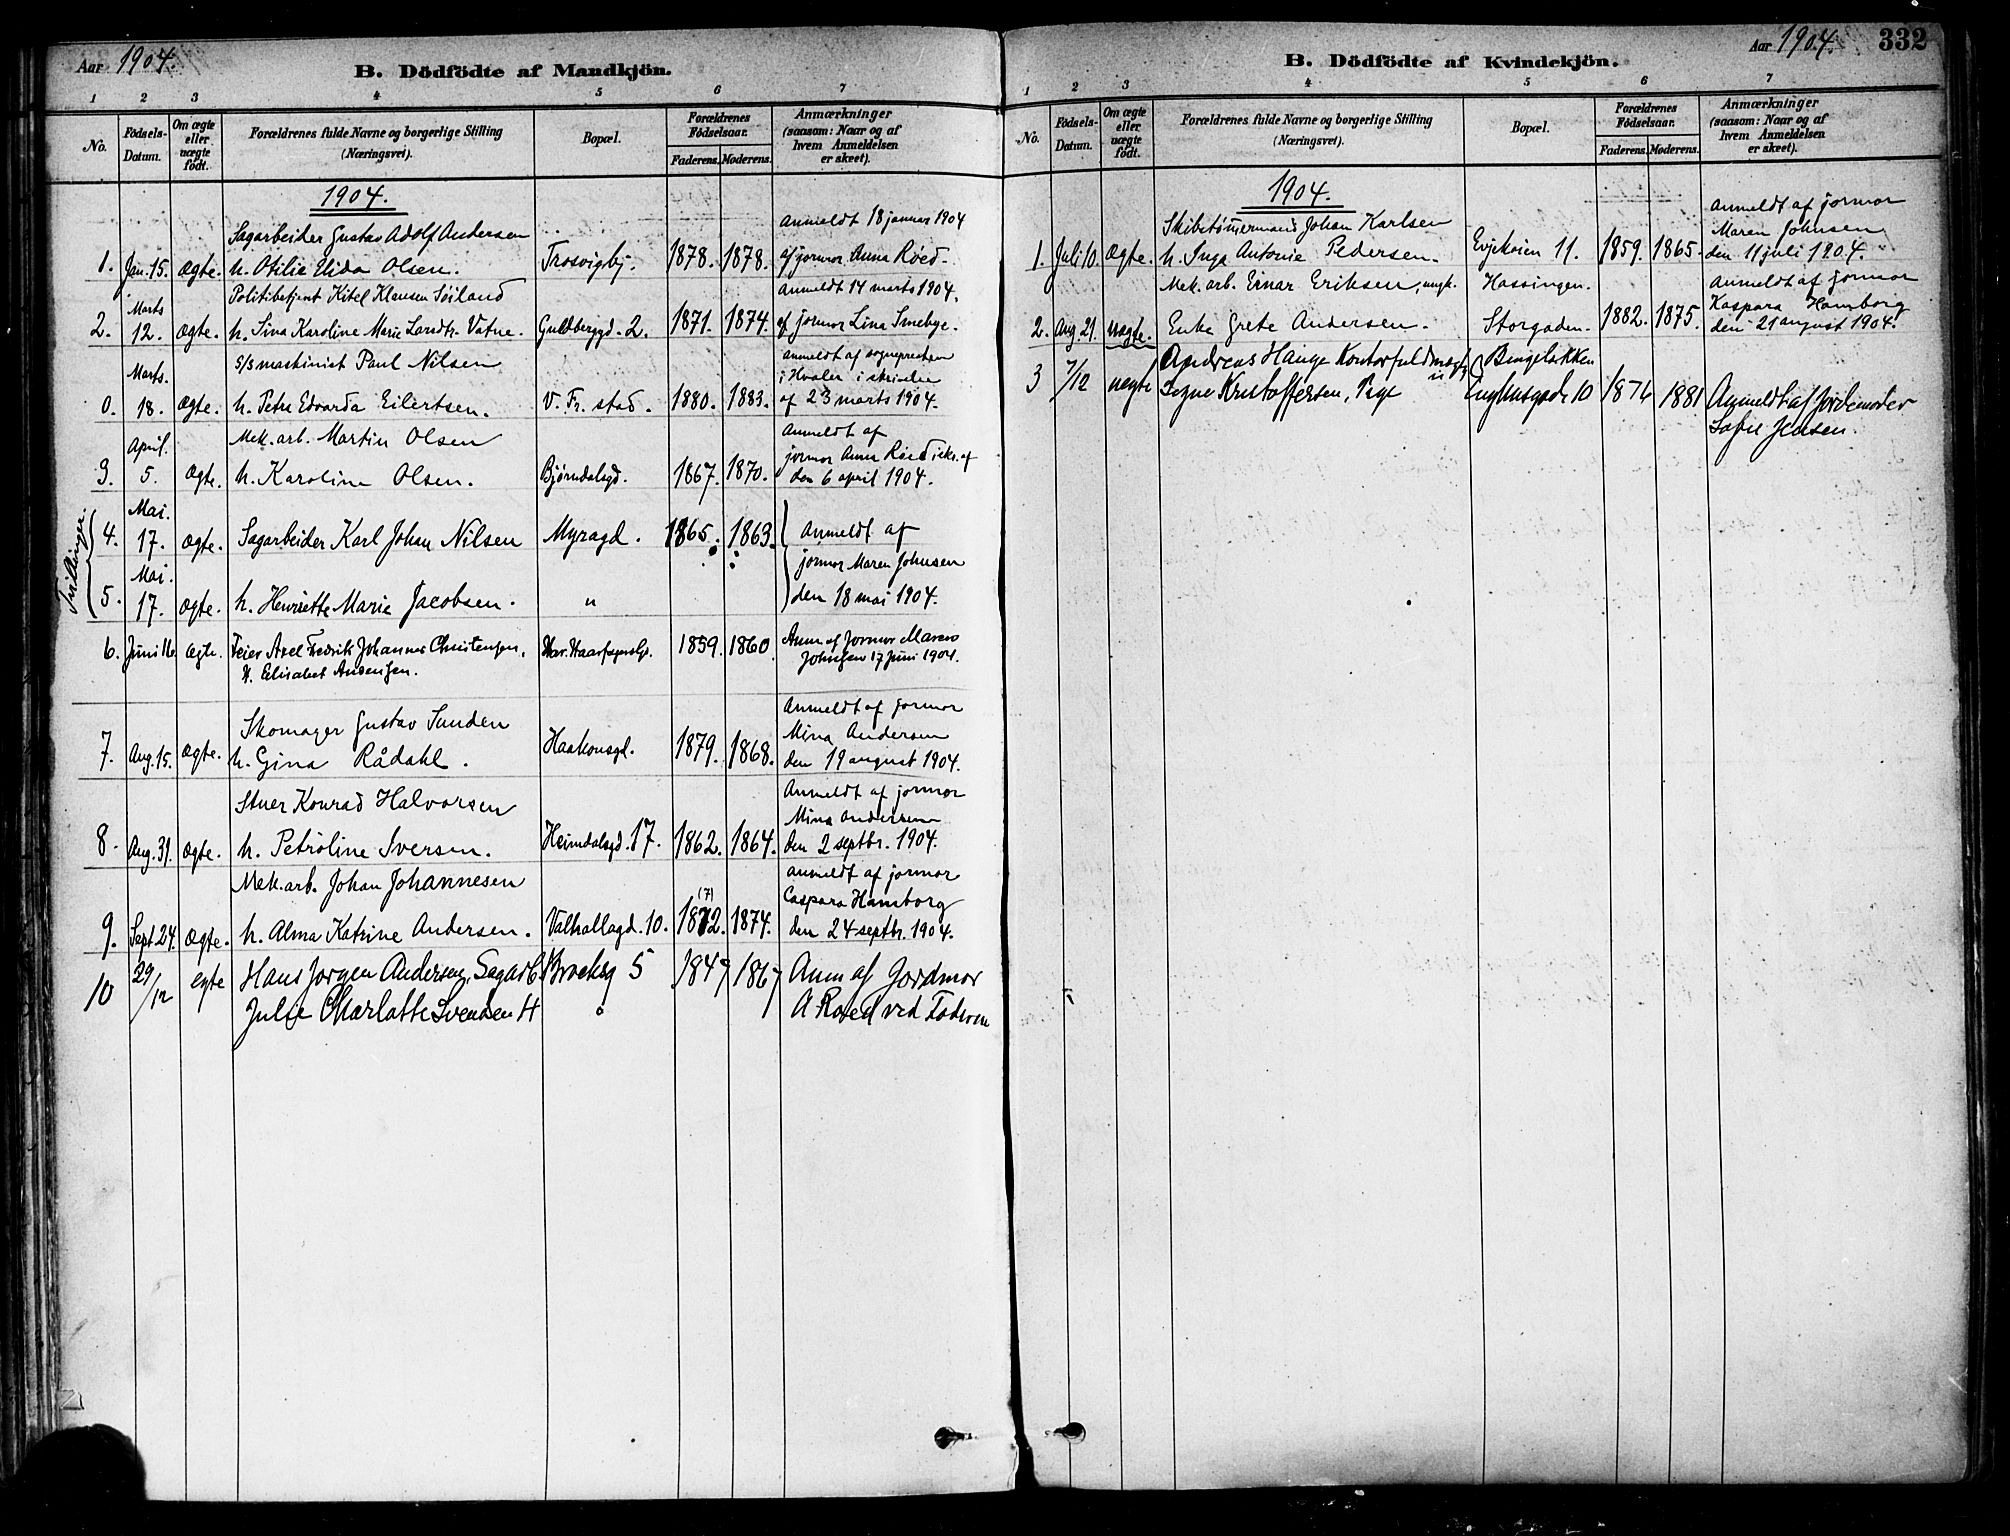 Aar 1904.
B. Dödfödte af Mandkjön.
1 2 3 4 5 6 7
No.
Födsels-Datum.
Om ægte eller uægte födt.
Forældrenes fulde Navne og borgerlige Stilling
(Næringsvei).
Bopæl.
Forældrenes Födselsaar.
Faderens. Moderens.
Anmærkninger
(saasom: Naar og af
hvem Anmeldelsen
er skeet).
1904.
Sagarbeider Gustav Adolf Andersen
Anmeldt 18 januar 1904
1. Jan. 15. Ægte. h. Otilie Elida Olsen. Trosvigbj. 1878. 1878. af jormor Anna Röed.
Politibetjent Kitel Klausen Söiland
Anmeldt 14 marts 1904.
2. Marts 12. Ægte. h. Sina Karoline Marie Vatne. Guldbergd. 2. 1871. 1874. af jormor Lina Smebye.
S/s maskinist Paul Nilsen
Anmeldt af sognepresten
i Hvaler i skrivelse
0. Marts. 18. Ægte. h. Petra Edvarda Eilertsen. V. Fr. stad. 1880. 1883. af 23 marts 1904.
Mek. arb. Martin Olsen
Anmeldt af
jormor Anna Röed
3. April. 5. Ægte. h. Karoline Olsen. Bjørndalsgd. 1867. 1870. den 6 april 1904.
Tvillinger.
4. Mai. 17. Ægte. Sagarbeider Karl Johan Nilsen Myragd. 1865. 1863. Anmeldt af
jormor Maren Johnsen
5. Mai. 17. Ægte. h. Henriette Marie Jacobsen. " den 18 mai 1904.
6. Juni 16. Ægte. Feier Axel Fredrik Johannes Christensen, Har. Haarfagersgd. 1859. 1860. Anm. af Jormor Maren
H. Elisabet Andersen. Johnsen 17 Juni 1904.
Skomager Gustav Sunden
Anmeldt af jormor
Mina Andersen
7. Aug. 15. Ægte. h. Gina Rådahl. Haakonsgd. 1879. 1868. den 19 august 1904.
Stuer Konrad Halvorsen
Anmeldt af jormor
Mina Andersen
8. Aug. 31. Ægte. h. Petroline Iversen. Heimdalsgd. 17. 1862. 1864. den 2 septbr. 1904.
Mek. arb. Johan Johannesen
Anmeldt af jormor
Caspara Hamborg
9. Sept 24. Ægte. h. Alma Katrine Andersen. Valhallagd. 10. 1872. (7) 1874. den 24 septbr. 1904.
10 29/12 egte Hans Jørgen Andersen, Sagarb. Brocksg 5 1849 1867 Anm af Jordmor
Julie Charlotte Svendsen H " A Roed ved Faderen
Aar 1904. 332
B. Dödfödte af Kvindekjön.
1 2 3 4 5 6 7
No.
Födsels-Datum.
Om ægte eller uægte födt.
Forældrenes fulde Navne og borgerlige Stilling
(Næringsvei).
Bopæl.
Forældrenes Födselsaar.
Faderens. Moderens.
Anmærkninger
(saasom: Naar og af
hvem Anmeldelsen
er skeet).
1904.
Skibstömmermand Johan Karlsen
Anmeldt af jormor
Maren Johnsen
1. Juli 10. Ægte. h. Inga Antonie Pedersen. Evjekoien 11. 1859. 1865. den 11 juli 1904.
Mek. arb. Einar Eriksen, ungk. Hassingen.
Anmeldt af jormor
Kaspara Hamborg
2. Aug 21. uægte. Enke Grete Andersen. Storgaden. 1882. 1875. den 21 august 1904.
Andreas Hauge Kontorfuldmægt. Bingeløkken
3 7/12 uegte Signe Kristoffersen, Pige 10 1876 1881 Anmeldt af Jordemoder
Sofie Jensen.